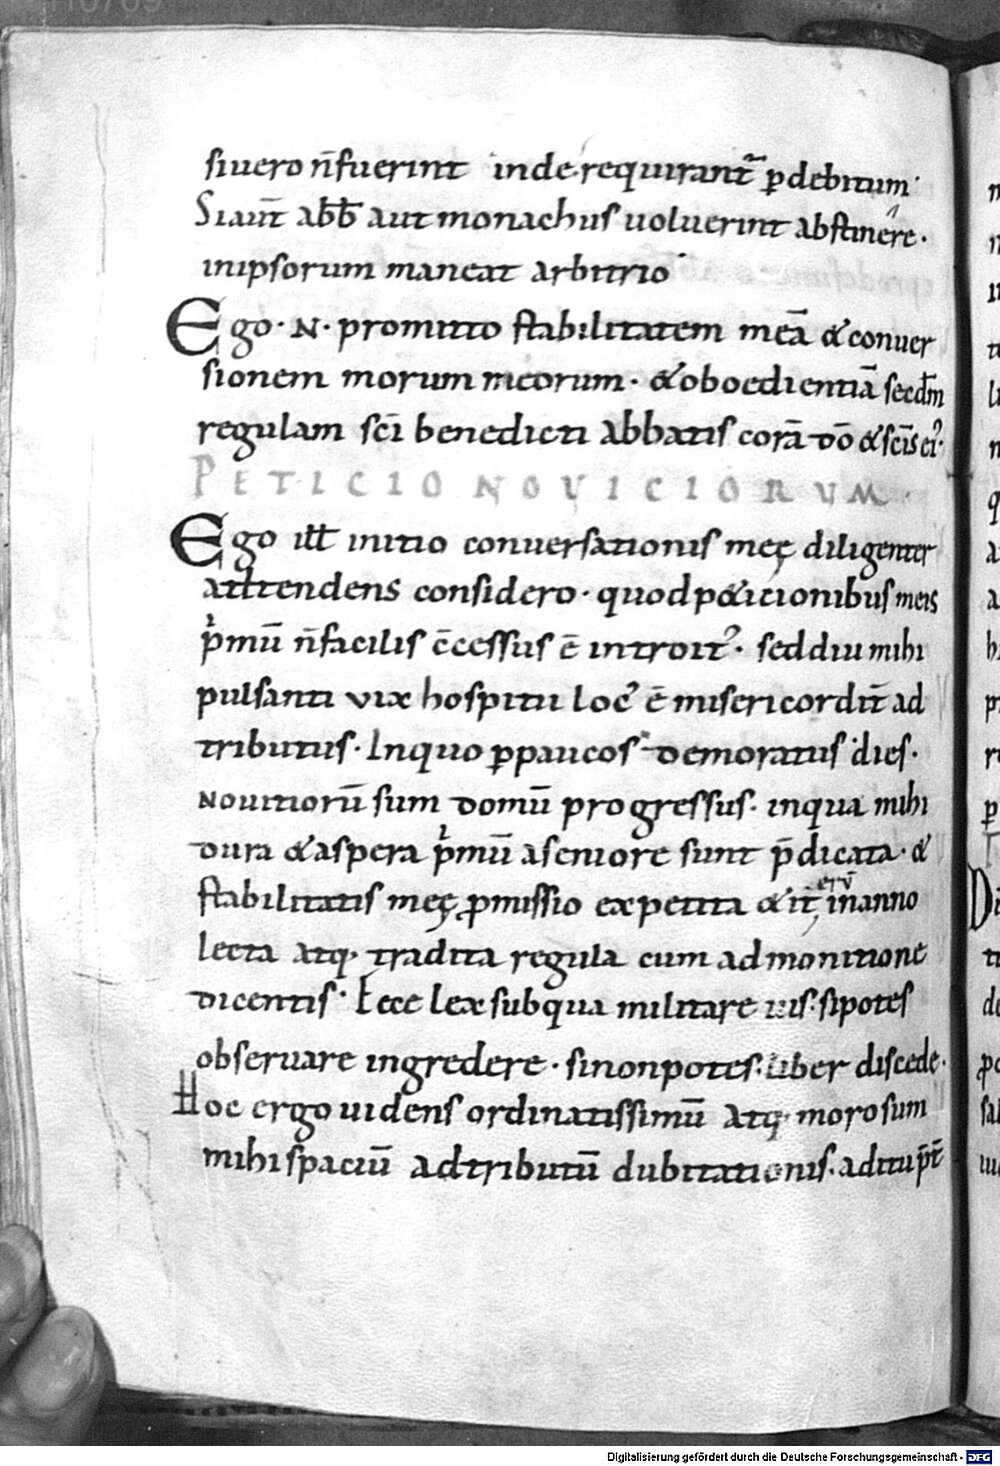 siuero n̄ fuerint inde requirant̄ ꝑ debitum·
Si aut̄ abb̄ aut monachus uoluerint abstinere·
in ipsorum maneat arbitrio
Ego· N· promitto stabilitatem meā & conuer
sionem morum meorum· & oboedientiā secdm̄
regulam sc̄i benedicti abbatis corā dō & sc̄is ei᾿·
PETICIO NOUICIORUM·
Ego ill̄ initio conuersationis meę diligenter
adtendens considero· quod p&icionibus meis
pͥmū n̄ facilis c̄cessus ē introit᾿· sed diu mihi
pulsanti vix hospitii loc᾿ ē misericordit̄ ad
tributus· In quo ꝑ paucos demoratus dies·
Nouitiorū sum domū progressus· in qua mihi
dura & aspera pͥmū a seniore sunt p̄dicata· &
stabilitatis meę ꝓmissio expetita & it̄erū in anno
lecta atq· tradita regula cum admonitione
dicentis· Ecce lex sub qua militare uis· si potes
obseruare ingredere· si non potes· liber discede·
Hoc ergo uidens ordinatissimū atq· morosum
mihi spaciū adtributū dubitationis· aditu p̄t̄